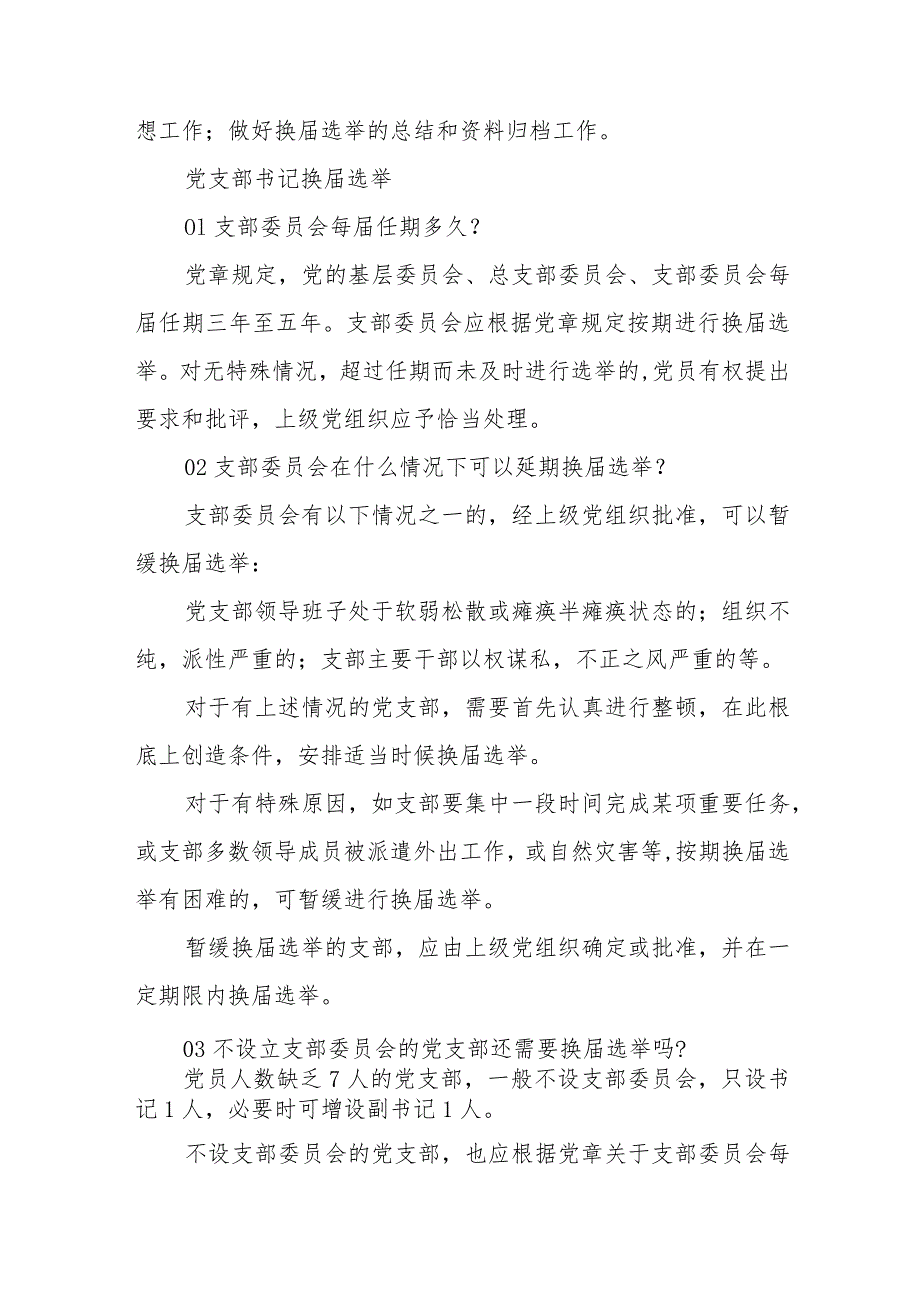 想工作；做好换届选举的总结和资料归档工作。
党支部书记换届选举
01 支部委员会每届任期多久？
党章规定，党的基层委员会、总支部委员会、支部委员会每
届任期三年至五年。支部委员会应根据党章规定按期进行换届选
举。对无特殊情况，超过任期而未及时进行选举的,党员有权提出
要求和批评，上级党组织应予恰当处理。
02 支部委员会在什么情况下可以延期换届选举？
支部委员会有以下情况之一的，经上级党组织批准，可以暂
缓换届选举：
党支部领导班子处于软弱松散或瘫痪半瘫痪状态的；组织不
纯，派性严重的；支部主要干部以权谋私，不正之风严重的等。
对于有上述情况的党支部，需要首先认真进行整顿，在此根
底上创造条件，安排适当时候换届选举。
对于有特殊原因，如支部要集中一段时间完成某项重要任务，
或支部多数领导成员被派遣外出工作，或自然灾害等,按期换届选
举有困难的，可暂缓进行换届选举。
暂缓换届选举的支部，应由上级党组织确定或批准，并在一
定期限内换届选举。
03 不设立支部委员会的党支部还需要换届选举吗?
党员人数缺乏 7 人的党支部，一般不设支部委员会，只设书
记 1 人，必要时可增设副书记 1 人。
不设支部委员会的党支部，也应根据党章关于支部委员会每